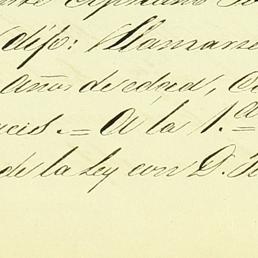 dijo: Llamarse
años de edad,
= A la 1.ª
de la Ley con D.